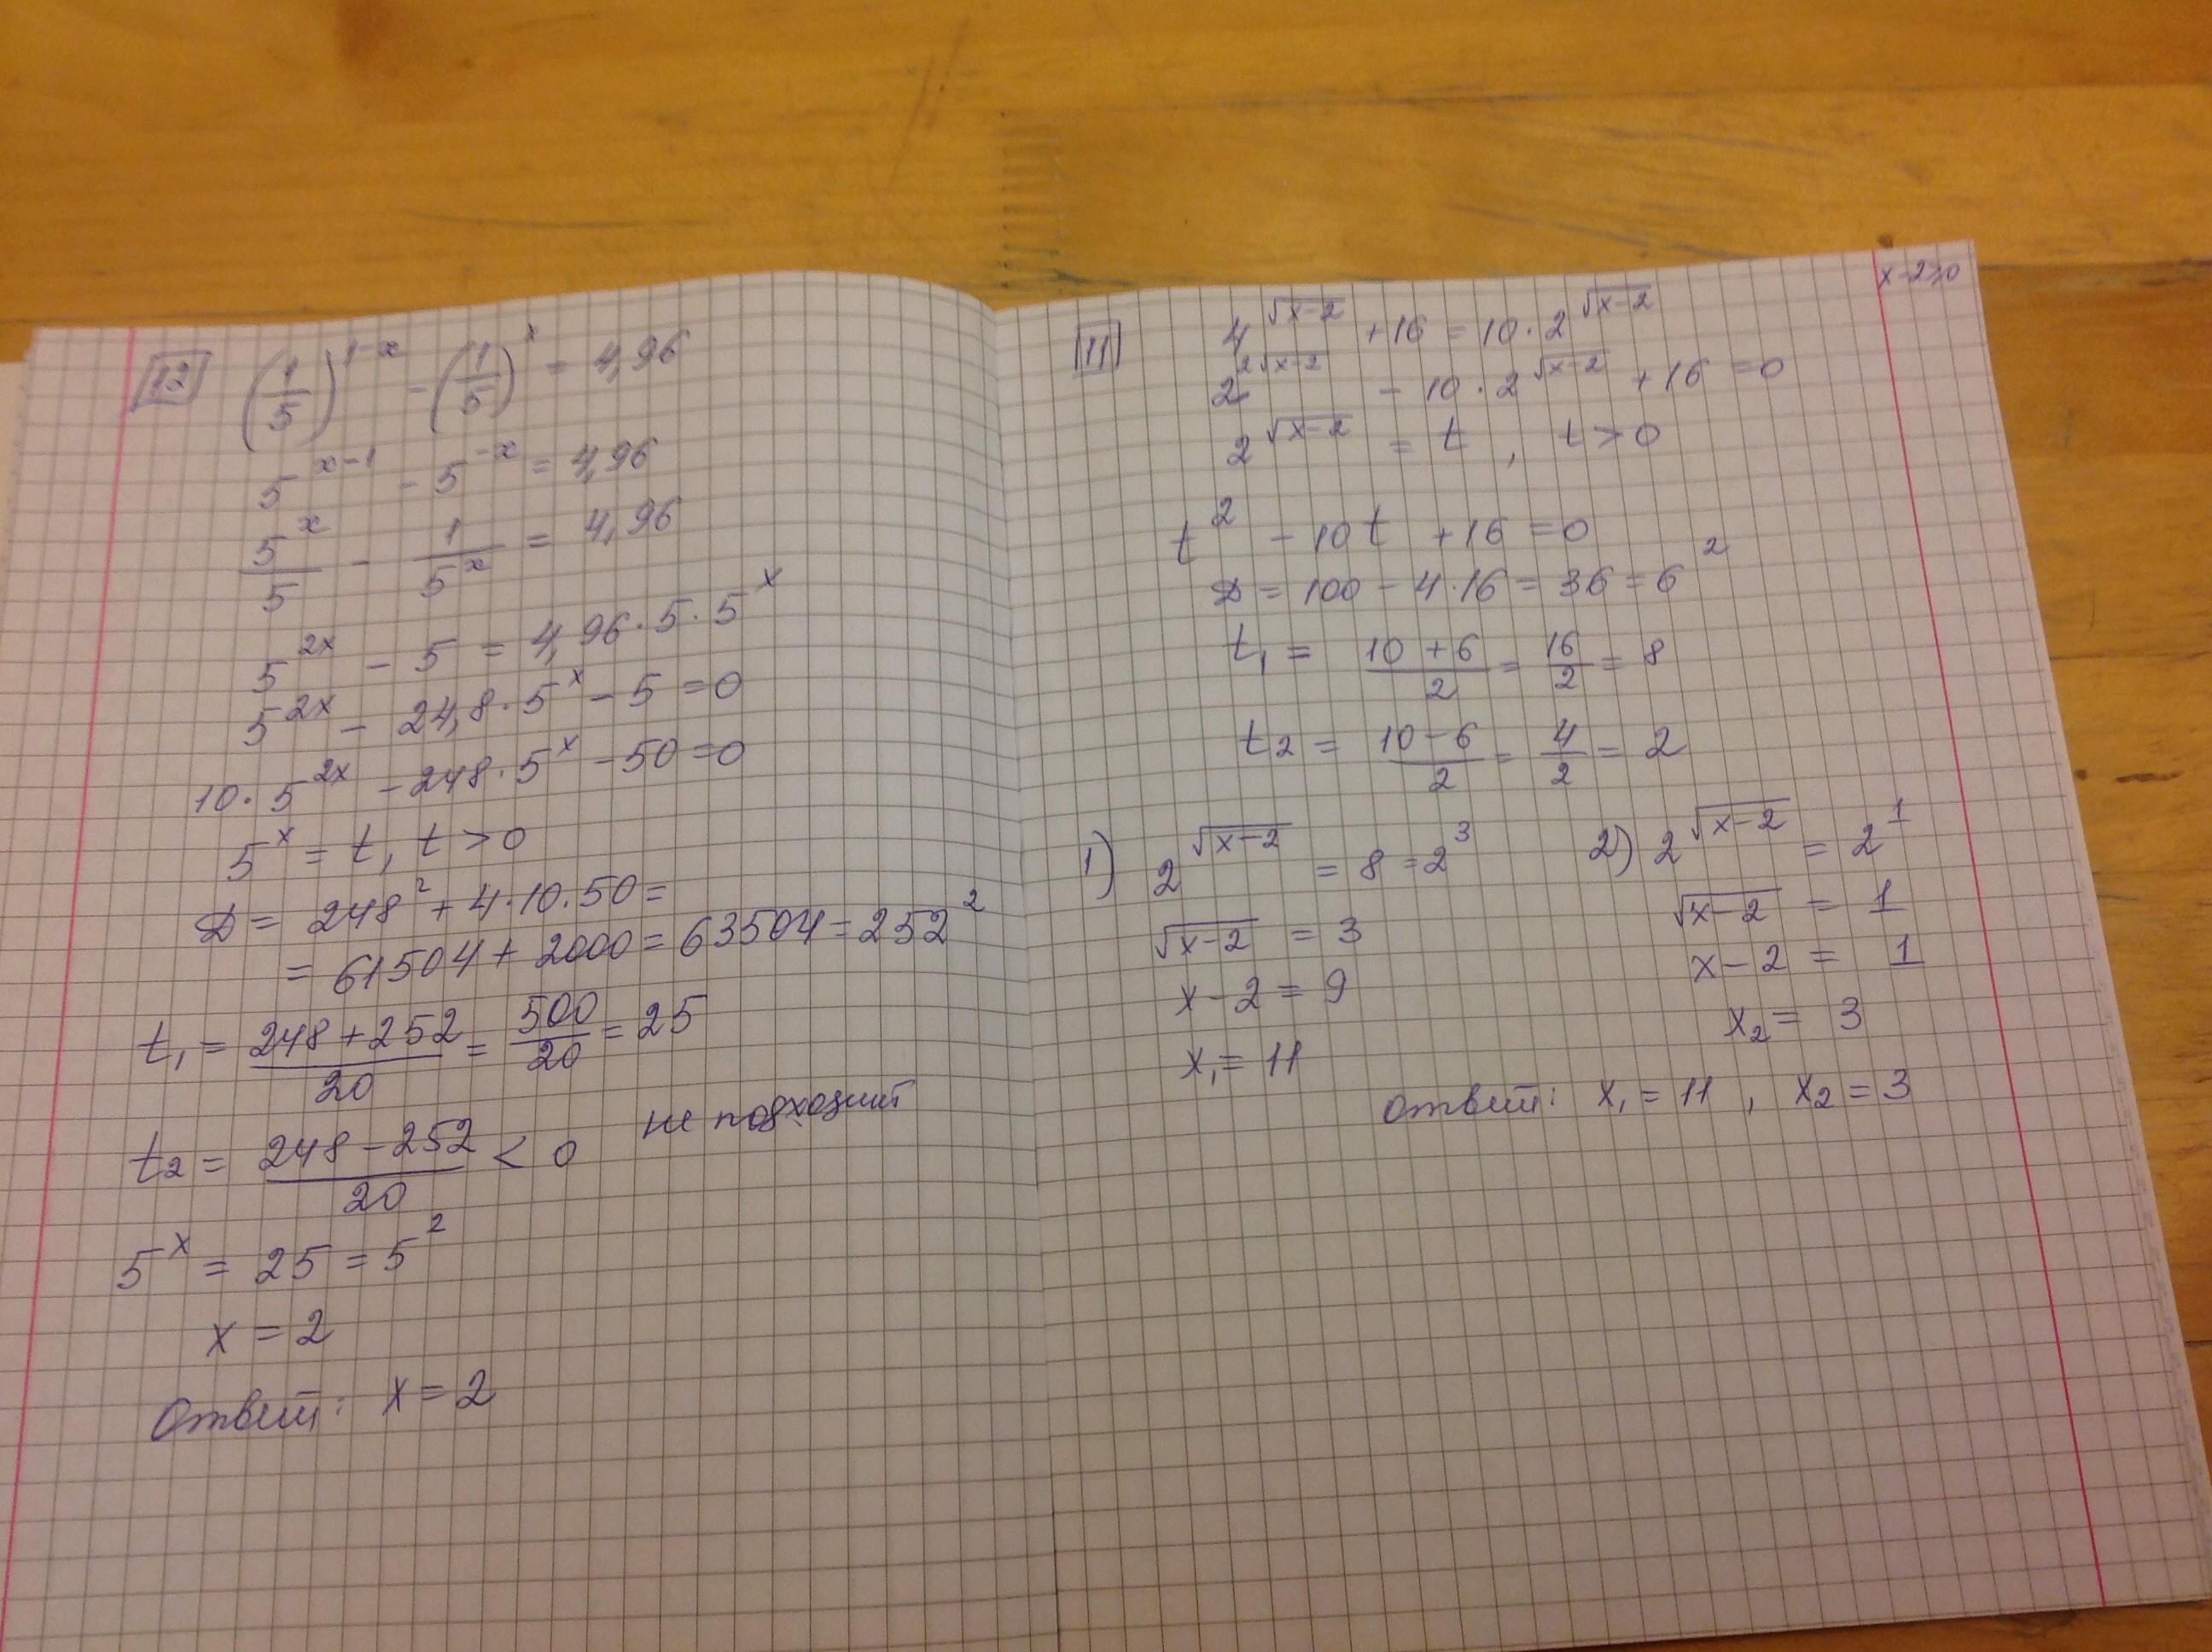 12 (1/5)^(1-x) - (1/5)^x = 4,96
5^(x-1) - 5^(-x) = 4,96
5^x/5 - 1/5^x = 4,96
5^(2x) - 5 = 4,96·5·5^x
5^(2x) - 24,8·5^x - 5 = 0
10·5^(2x) - 248·5^x - 50 = 0
5^x = t, t > 0
D = 248² + 4·10·50 =
= 61504 + 2000 = 63504 = 252²
t₁ = (248+252)/20 = 500/20 = 25
t₂ = (248-252)/20 < 0 не подходит
5^x = 25 = 5²
x = 2
Ответ: x = 2
x-2≥0
11 4^√(x-2) + 16 = 10·2^√(x-2)
2^(2√(x-2)) - 10·2^√(x-2) + 16 = 0
2^√(x-2) = t, t > 0
t² - 10t + 16 = 0
D = 100 - 4·16 = 36 = 6²
t₁ = (10+6)/2 = 16/2 = 8
t₂ = (10-6)/2 = 4/2 = 2
1) 2^√(x-2) = 8 = 2³
√(x-2) = 3
x-2 = 9
x₁ = 11
2) 2^√(x-2) = 2¹
√(x-2) = 1
x-2 = 1
x₂ = 3
Ответ: x₁ = 11, x₂ = 3